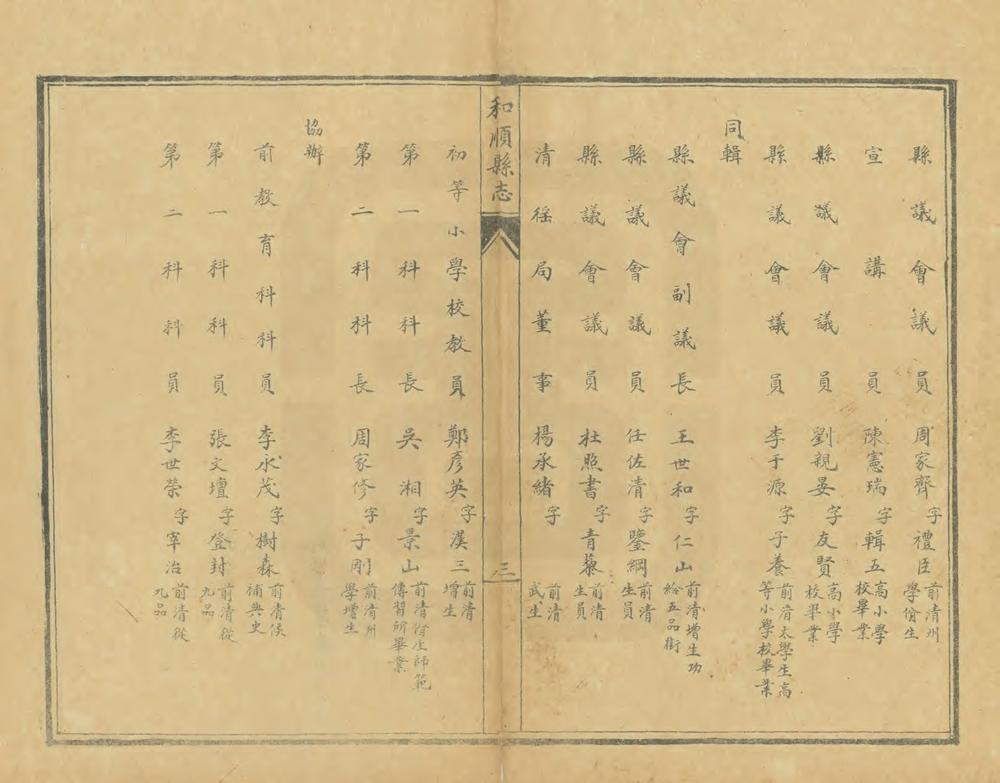 縣議會議員周家齊字禮臣前清州學儉生
宣講員陳憲瑞字輯五高小學校畢業
縣議會議員劉親晏字友賢高小學校畢業
縣議會議員李于源字子養前清太學生高等小學校畢業
同輯
縣議會副議長王世和字仁山前清增生功給五品銜
縣議會議員任佐清字鑒綱前清生員
縣議會議員杜照書字青藜前清生員
清徭局董事楊承緒字前清武生
和順縣志
三
初等小學校教員鄭彥英字漢三前清增生
第一科科長吳湘字景山前清附生師範傳習所畢業
第二科科長周家修字子剛前清州學增生
協辦
前教育科科員李永茂字樹森前清候補典史
第一科科員張文壇字登封前清從九品
第二科科員李世榮字宰治前清從九品